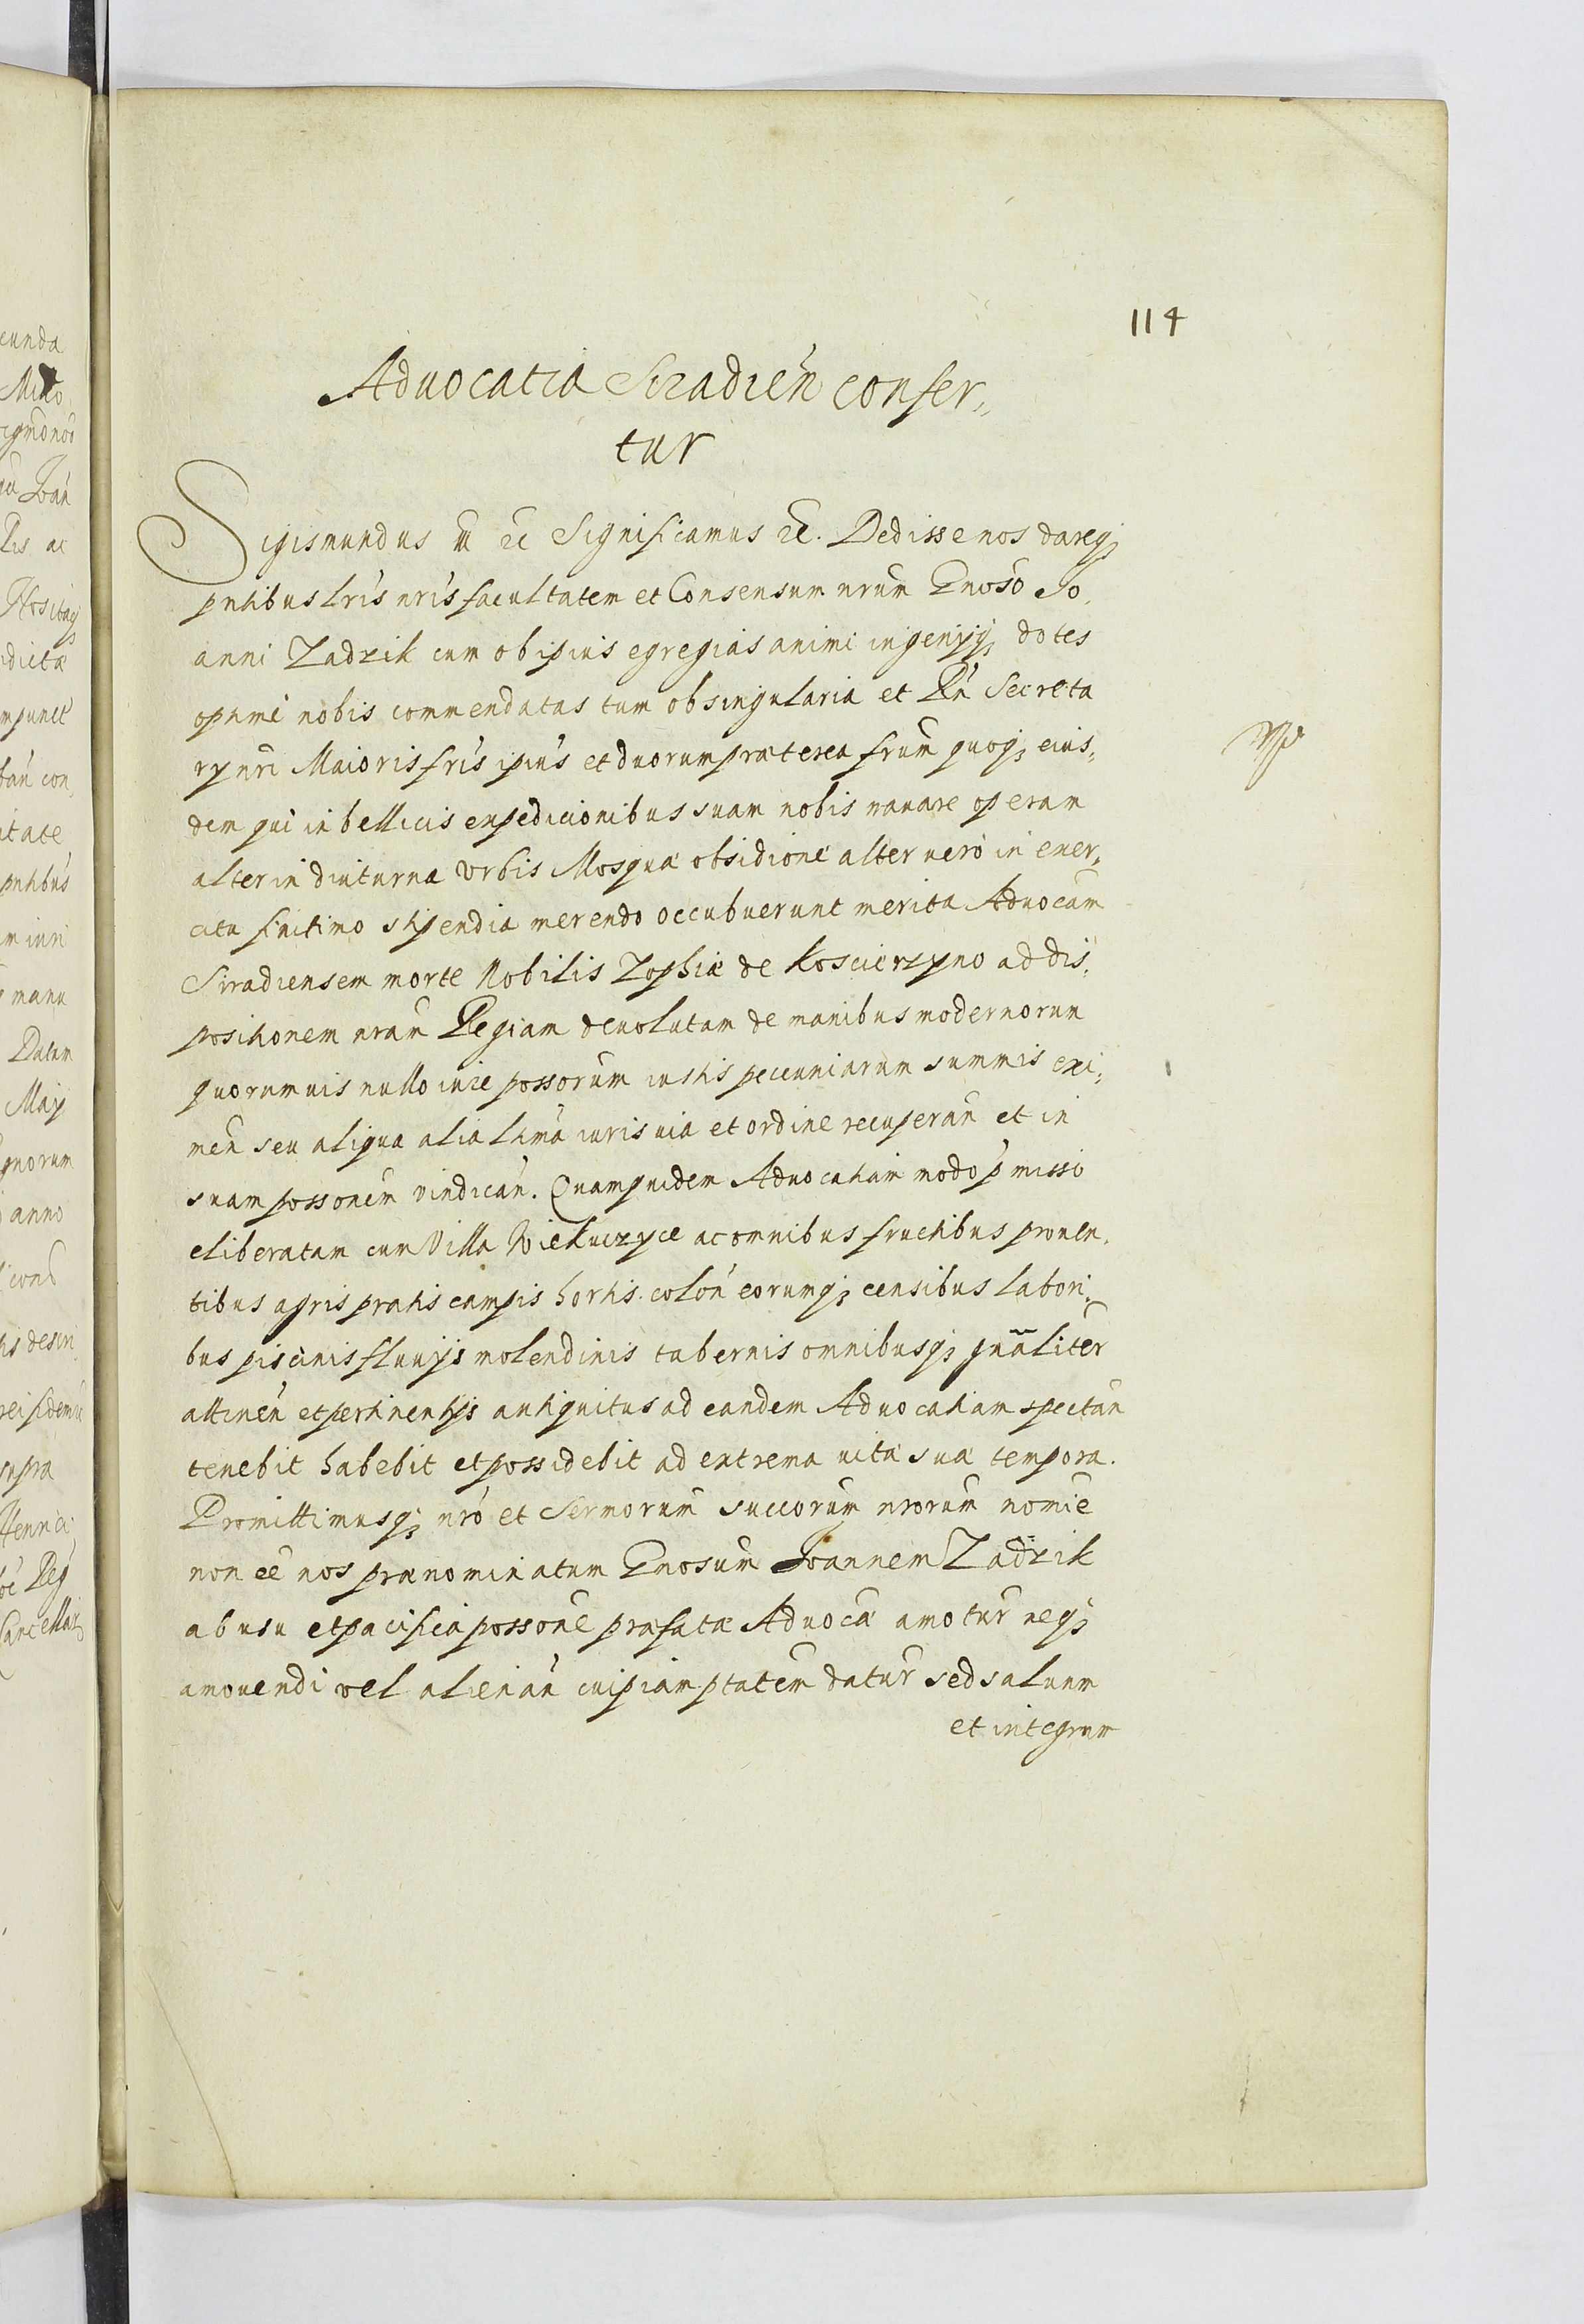 114
Aduocatia Siradien confer„
tur
Sigismundus III etc Significamus etc. Dedisse nos dareq;
pntibus lris nris facultatem et Consensum nrum Gnoso Jo„
anni Zadzik cum ob ipius egregias animi ingenijq; dotes
optime nobis commendatas tum ob singularia et Rn Secreta
ry nri Maioris fris ipius et duorum præterea frum quoq; eius„
dem qui in bellicis expedicionibus suam nobis nauare operam
alter in diuturna Vrbis Mosquæ obsidione alter uero in exer„
citu finitimo stipendia merendo occubuerunt merita Aduocam
Siradiensem morte Nobilis Zophiæ de Koscierzyno ad dis„
positionem nram Regiam deuolutam de manibus modernorum
quorumuis nullo iure possorum iustis pecuniarum summis exi„
men seu aliqua alia ltima iuris uia et ordine recuperan et in
suam possonem vindican. Quamquidem Aduocatiam modo pmisso
eliberatam cum Villa Wiekuczyce ac omnibus fructibus prouen„
tibus agris pratis campis hortis colon eorumq; censibus labori„
bus piscinis fluuijs molendinis tabernis omnibusq; gnaliter
attinen et pertinentijs antiquitus ad eandem Aduocatiam spectan
tenebit habebit et possidebit ad extrema uitæ suæ tempora.
Promittimusq; nro et Sermorum succorum nrorum nomie
non ee nos prænominatum Gnosum Joannem Zadzik
ab usu et pacifica possone præfatæ Aduocæ amotur neq;
amouendi vel alienan cuipiam ptatem datur sed saluum
et integrum